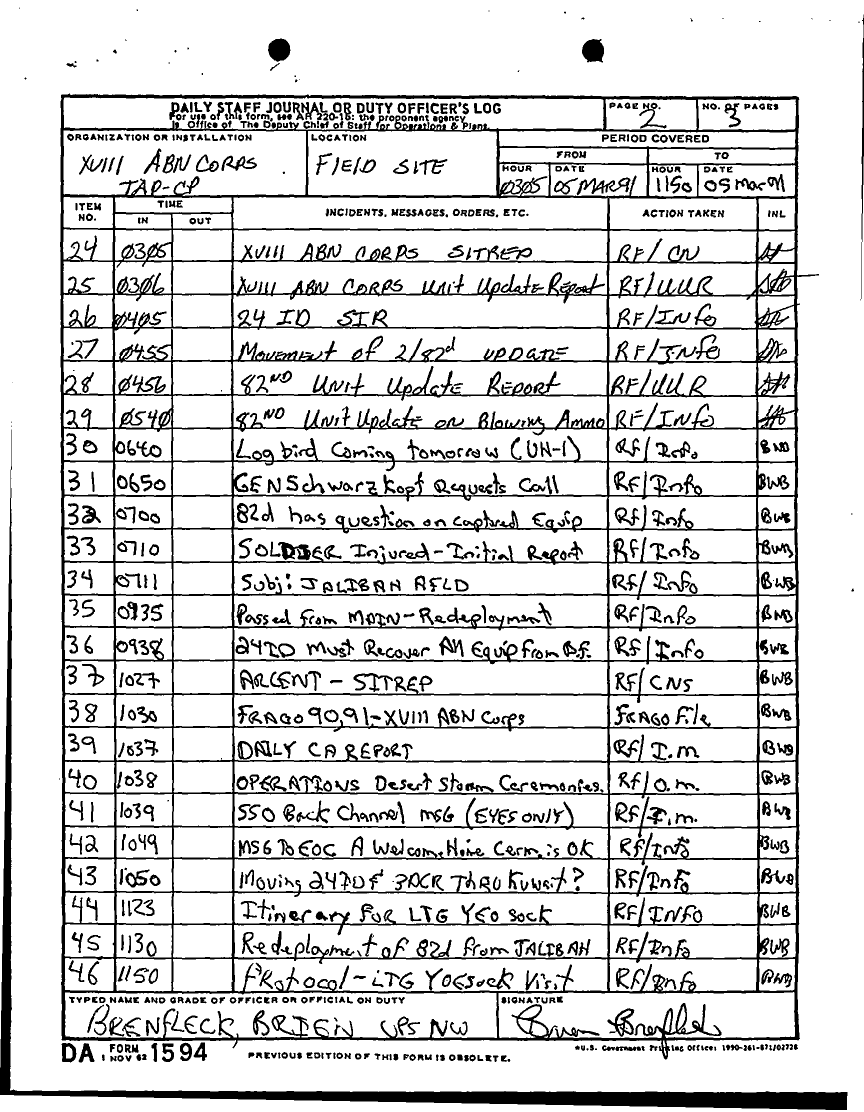 DAILY STAFF JOURNAL OR DUTY OFFICER'S LOG
For use of this form, see AR 220-15: the proponent agency
is Office of The Deputy Chief of Staff for Operations & Plans.
PAGE NO.
2
NO. OF PAGES
3
ORGANIZATION OR INSTALLATION
XVIII ABN CORPS
TAP-CP
LOCATION
FIELD SITE
PERIOD COVERED
FROM
TO
HOUR DATE HOUR DATE
0305 05 MAR 91 1150 05 Mar 91
ITEM NO. TIME IN OUT INCIDENTS, MESSAGES, ORDERS, ETC. ACTION TAKEN INL
24 0305 XVIII ABN CORPS SITREP RF/CN
25 0306 XVIII ABN CORPS Unit Update Report RF/UUR
26 0405 24 ID SIR RF/INfo
27 0455 Movement of 2/82d UPDATE RF/INfo
28 0456 82ND Unit Update REPORT RF/UUR
29 0540 82ND Unit Update on Blowing Ammo RF/INfo
30 0640 Log bird Coming tomorrow (UH-1) Rf/Info
31 0650 GEN Schwarzkopf Requests Call Rf/Info BWB
32 0700 82d has question on captured Equip Rf/Info BWB
33 0710 SOLDIER Injured-Initial Report Rf/Info BWB
34 0711 Subj: JALIBAH AFLD Rf/Info BWB
35 0935 Passed from MAIN-Redeployment Rf/Info BWB
36 0938 24ID Must Recover All Equip from Rf/Info BWB
37 1027 ARCENT - SITREP RF/CNS BWB
38 1030 FRAGO 90,91-XVIII ABN Corps FRAGO File BWB
39 1037 DAILY CA REPORT Rf/I.m. BWB
40 1038 OPERATIONS Desert Storm Ceremonies. Rf/O.m. BWB
41 1039 SSO Back Channel msg (EYES ONLY) Rf/I.m. BWB
42 1049 MSG To EOC A Welcome Home Cerm. is OK Rf/Info BWB
43 1050 Moving 24ID & 3ACR THRU Kuwait? Rf/Info BWB
44 1123 Itinerary FOR LTG YEOsock RF/INFO BWB
45 1130 Redeployment of 82d from JALIBAH RF/Info BWB
46 1150 PRotocol-LTG YOEsock Visit RF/Info BWB
TYPED NAME AND GRADE OF OFFICER OR OFFICIAL ON DUTY
BRENFLECK, BRIEN
SIGNATURE
DA FORM 1 NOV 62 1594
PREVIOUS EDITION OF THIS FORM IS OBSOLETE.
*U.S. Government Printing Office: 1990-261-871/02728